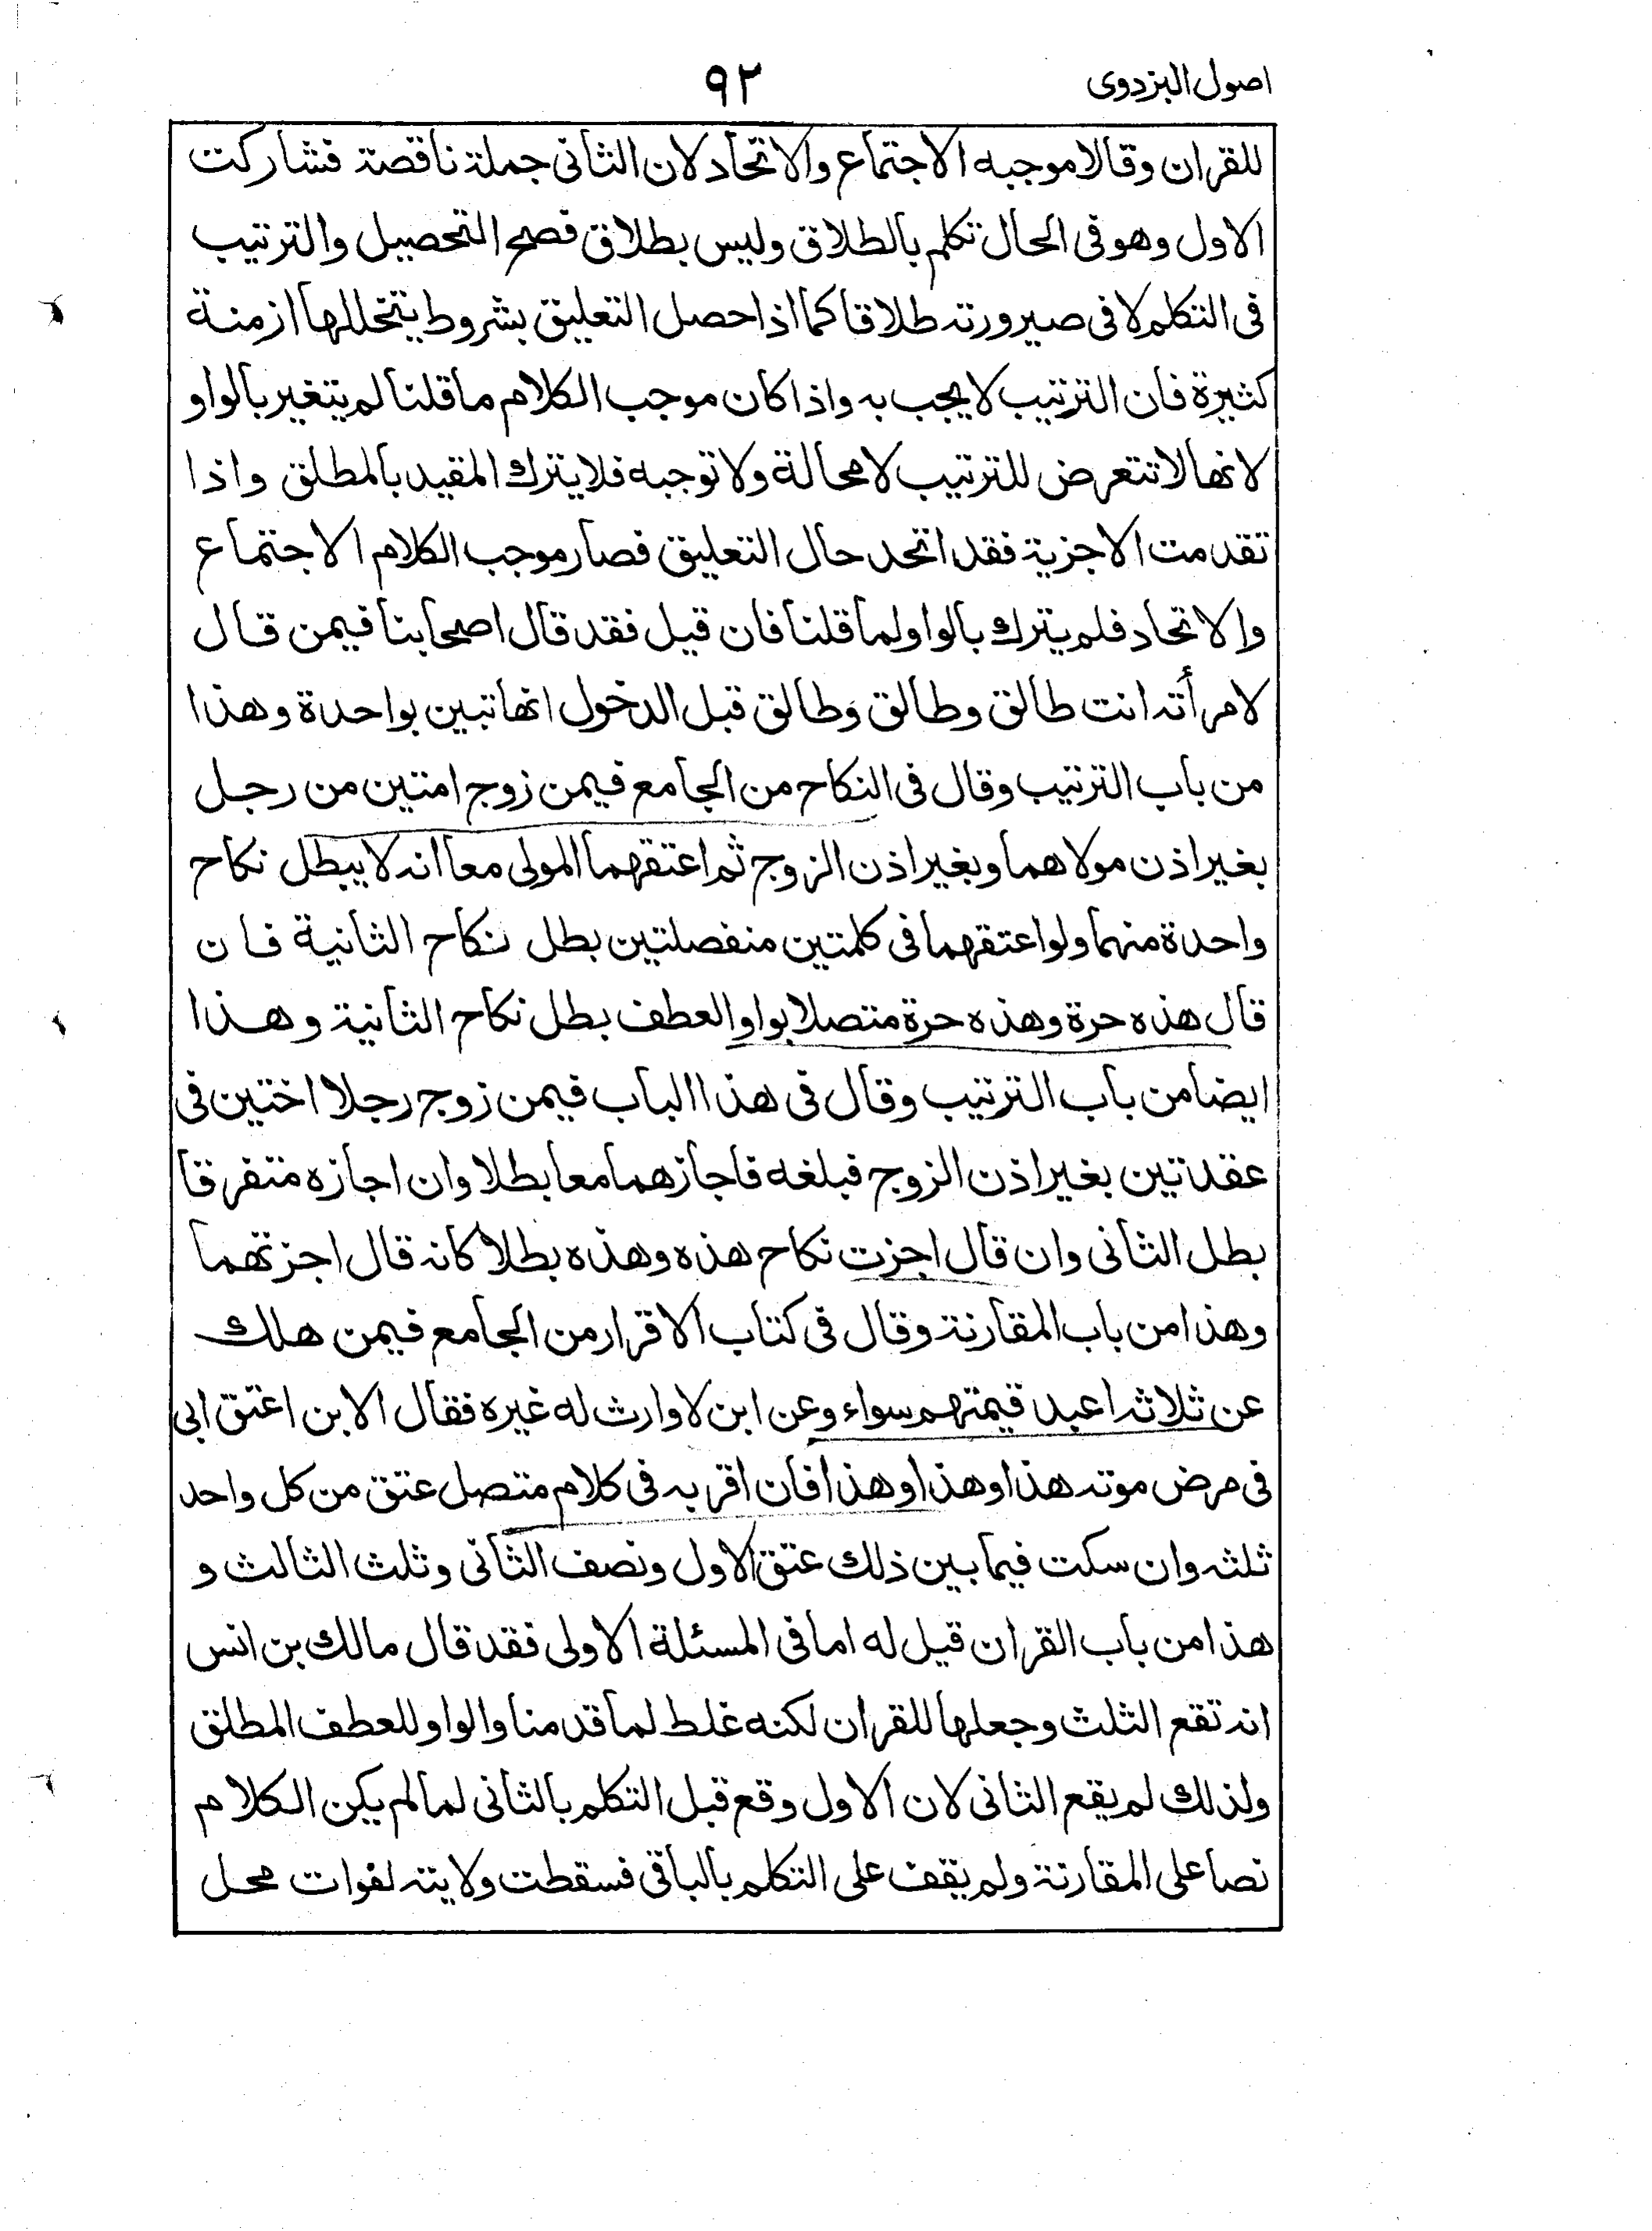 اصول البزدوى
٩٢
للقران وقالا موجبه الاجتماع والاتحاد لان الثانى جملة ناقصة فشاركت
الاول وهو فى الحال تكلم بالطلاق وليس بطلاق فصح التحصيل والترتيب
فى التكلم لا فى صيرورته طلاقا كما اذا حصل التعليق بشروط يتخللها ازمنة
كثيرة فان الترتيب لا يجب به واذا كان موجب الكلام ما قلنا لم يتغير بالواو
لانها لا تتعرض للترتيب لا محالة ولا توجبه فلا يترك المقيد بالمطلق واذا
تقدمت الاجزية فقد اتحد حال التعليق فصار موجب الكلام الاجتماع
والاتحاد فلم يترك بالواو لما قلنا فان قيل فقد قال اصحابنا فيمن قال
لامرأته انت طالق وطالق وطالق قبل الدخول انها تبين بواحدة وهذا
من باب الترتيب وقال فى النكاح من الجامع فيمن زوج امتين من رجل
بغير اذن مولاهما وبغير اذن الزوج ثم اعتقهما المولى معا انه لا يبطل نكاح
واحدة منهما ولو اعتقهما فى كلمتين منفصلتين بطل نكاح الثانية فان
قال هذه حرة وهذه حرة متصلا بواو العطف بطل نكاح الثانية وهذا
ايضا من باب الترتيب وقال فى هذا الباب فيمن زوج رجلا اختين فى
عقدتين بغير اذن الزوج فبلغه فاجازهما معا بطلا وان اجازه متفرقا
بطل الثانى وان قال اجزت نكاح هذه وهذه بطلا كانه قال اجزتهما
وهذا من باب المقارنة وقال فى كتاب الاقرار من الجامع فيمن هلك
عن ثلاثة اعبد قيمتهم سواء وعن ابن لا وارث له غيره فقال الابن اعتق ابى
فى مرض موته هذا وهذا وهذا فان اقر به فى كلام متصل عتق من كل واحد
ثلثه وان سكت فيما بين ذلك عتق الاول ونصف الثانى وثلث الثالث و
هذا من باب القران قيل له اما فى المسئلة الاولى فقد قال مالك بن انس
انه تقع الثلث وجعلها للقران لكنه غلط لما قدمنا والواو للعطف المطلق
ولذلك لم يقع الثانى لان الاول وقع قبل التكلم بالثانى لما لم يكن الكلام
نصا على المقارنة ولم يقف على التكلم بالباقى فسقطت ولايته لفوات محل